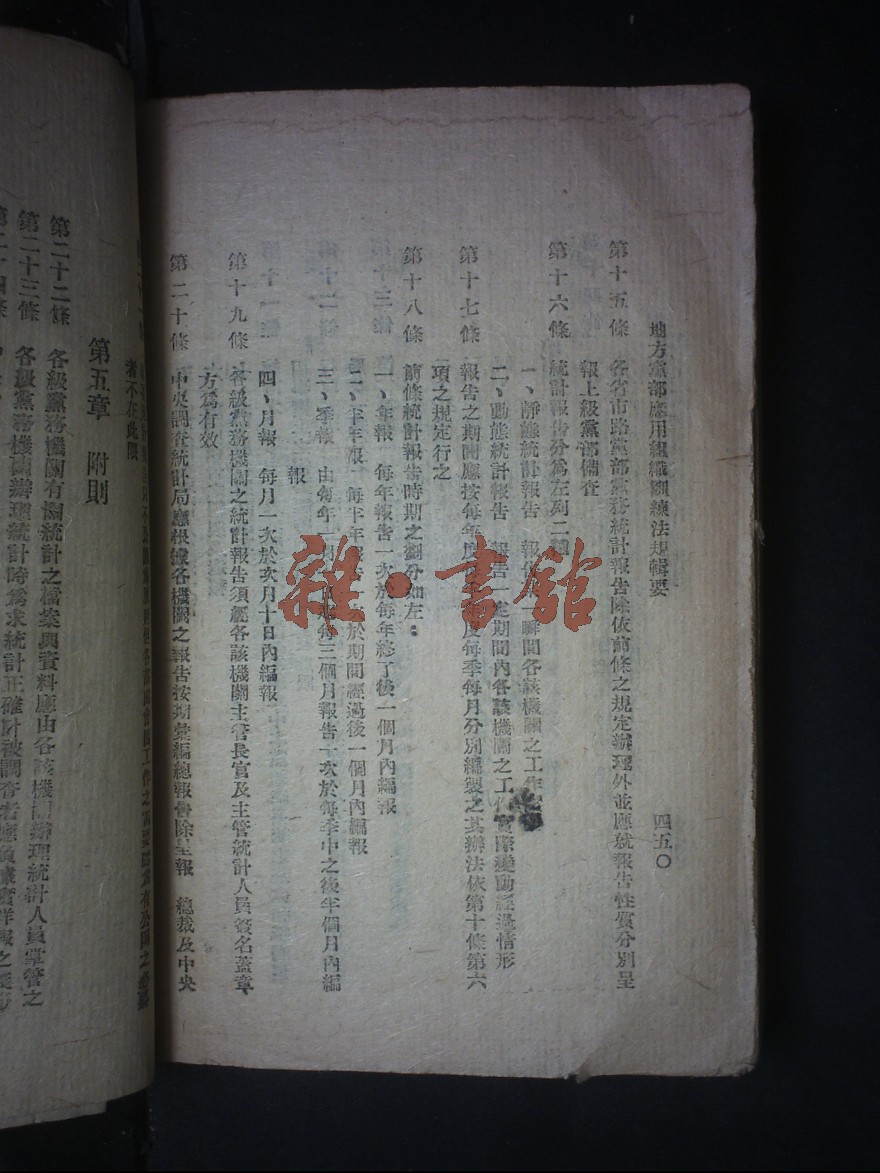 地方黨部應用組織訓練法規輯要
四五〇
第十五條 各省市路黨部黨務統計報告除依前條之規定辦理外並應就報告性質分別呈
報上級黨部備查
第十六條 統計報告分為左列二種
一、靜態統計報告 報告某一瞬間各該機關之工作
二、動態統計報告 報告一定期間內各該機關之工作實際變動經過情形
第十七條 報告之期間應按每年度 度每季每月分別編製之其辦法依第十條第六
項之規定行之
第十八條 前條統計報告時期之劃分如左：
一、年報 每年報告一次於每年終了後一個月內編報
二、半年報 每半年報告 於期間經過後一個月內編報
三、季報 由每年一月 每三個月報告一次於每季中之後半個月內編
報
四、月報 每月一次於次月十日內編報
第十九條 各級黨務機關之統計報告須經各該機關主管長官及主管統計人員簽名蓋章
方為有效
第二十條 中央調查統計局應根據各機關之報告按期彙編總報告除呈報 總裁及中央
者不在此限
第五章 附則
第二十二條 各級黨務機關有關統計之檔案與資料應由各該機關辦理統計人員掌管之
第二十三條 各級黨務機關辦理統計時為求統計正確計被調查者應負據實詳報之
雜·書館